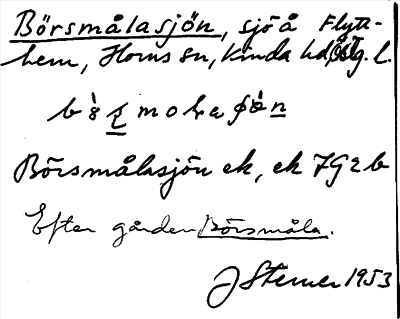 Börsmålasjön, sjö å Flytt-
hem, Horns sn, Kinda hd, Östg. l.
Börsmålasjön ek, ek 7G2b
Efter gården Börsmåla.
J Sterner 1953